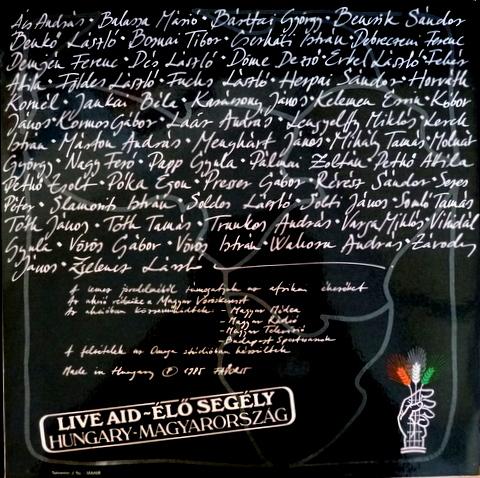 Ács András · Balassa Márió · Básztai György · Bencsik Sándor
Benkő László · Bornai Tibor · Cserháti István · Debreczeni Ferenc
Demjén Ferenc · Dés László · Döme Dezső · Erkel László · Fehér
Attila · Földes László · Fuchs László · Herpai Sándor · Horváth
Kornél · Jankai Béla · Karácsony János · Kelemen Ervin · Kóbor
János · Kormos Gábor · Laár András · Lengyelfi Miklós · Lerch
István · Márton András · Menyhárt János · Mihály Tamás · Molnár
György · Nagy Feró · Papp Gyula · Pálvai Zoltán · Pethő Attila
Pethő Zsolt · Póka Egon · Presser Gábor · Révész Sándor · Sezes
Péter · Slamovits István · Soldos László · Solti János · Somló Tamás
Tóth János · Tóth Tamás · Trunkos András · Varga Miklós · Vikidál
Gyula · Vörös Gábor · Vörös István · Wahorn András · Závodi
János · Zselencz László
A lemez jövedelméből támogatjuk az afrikai éhezőket
Az akció célkitűzése a Magyar Vöröskereszt
Az akcióban közreműködtek - Magyar Média
- Magyar Rádió
- Magyar Televízió
Budapest Sportcsarnok
A felvételek az Omega stúdióban készültek
Made in Hungary Ⓟ 1985 FAVORIT
LIVE AID ~ ÉLŐ SEGÉLY
HUNGARY - MAGYARORSZÁG